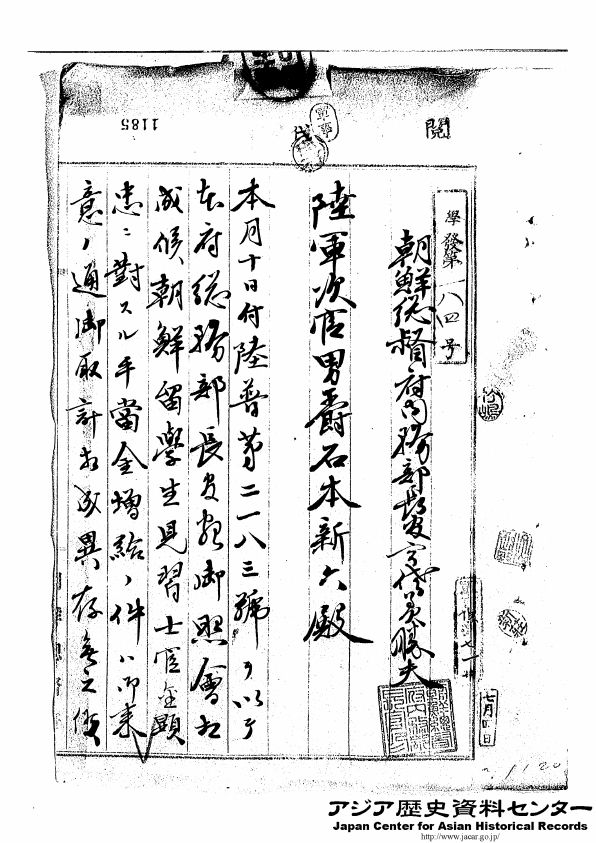 閲
軍事
1185
學發第一八四号
七月四日
朝鮮総督府内務部長官代
勝夫
陸軍次官男爵石本新六殿
本月十日付陸普第二一八三號ヲ以テ
本府総務部長官宛御照會相
成候朝鮮留學生見習士官金顯
忠ニ對スル手當金増給ノ件ハ御来
意ノ通御取計相成異存無之候
アジア歴史資料センター
Japan Center for Asian Historical Records
http://www.jacar.go.jp/